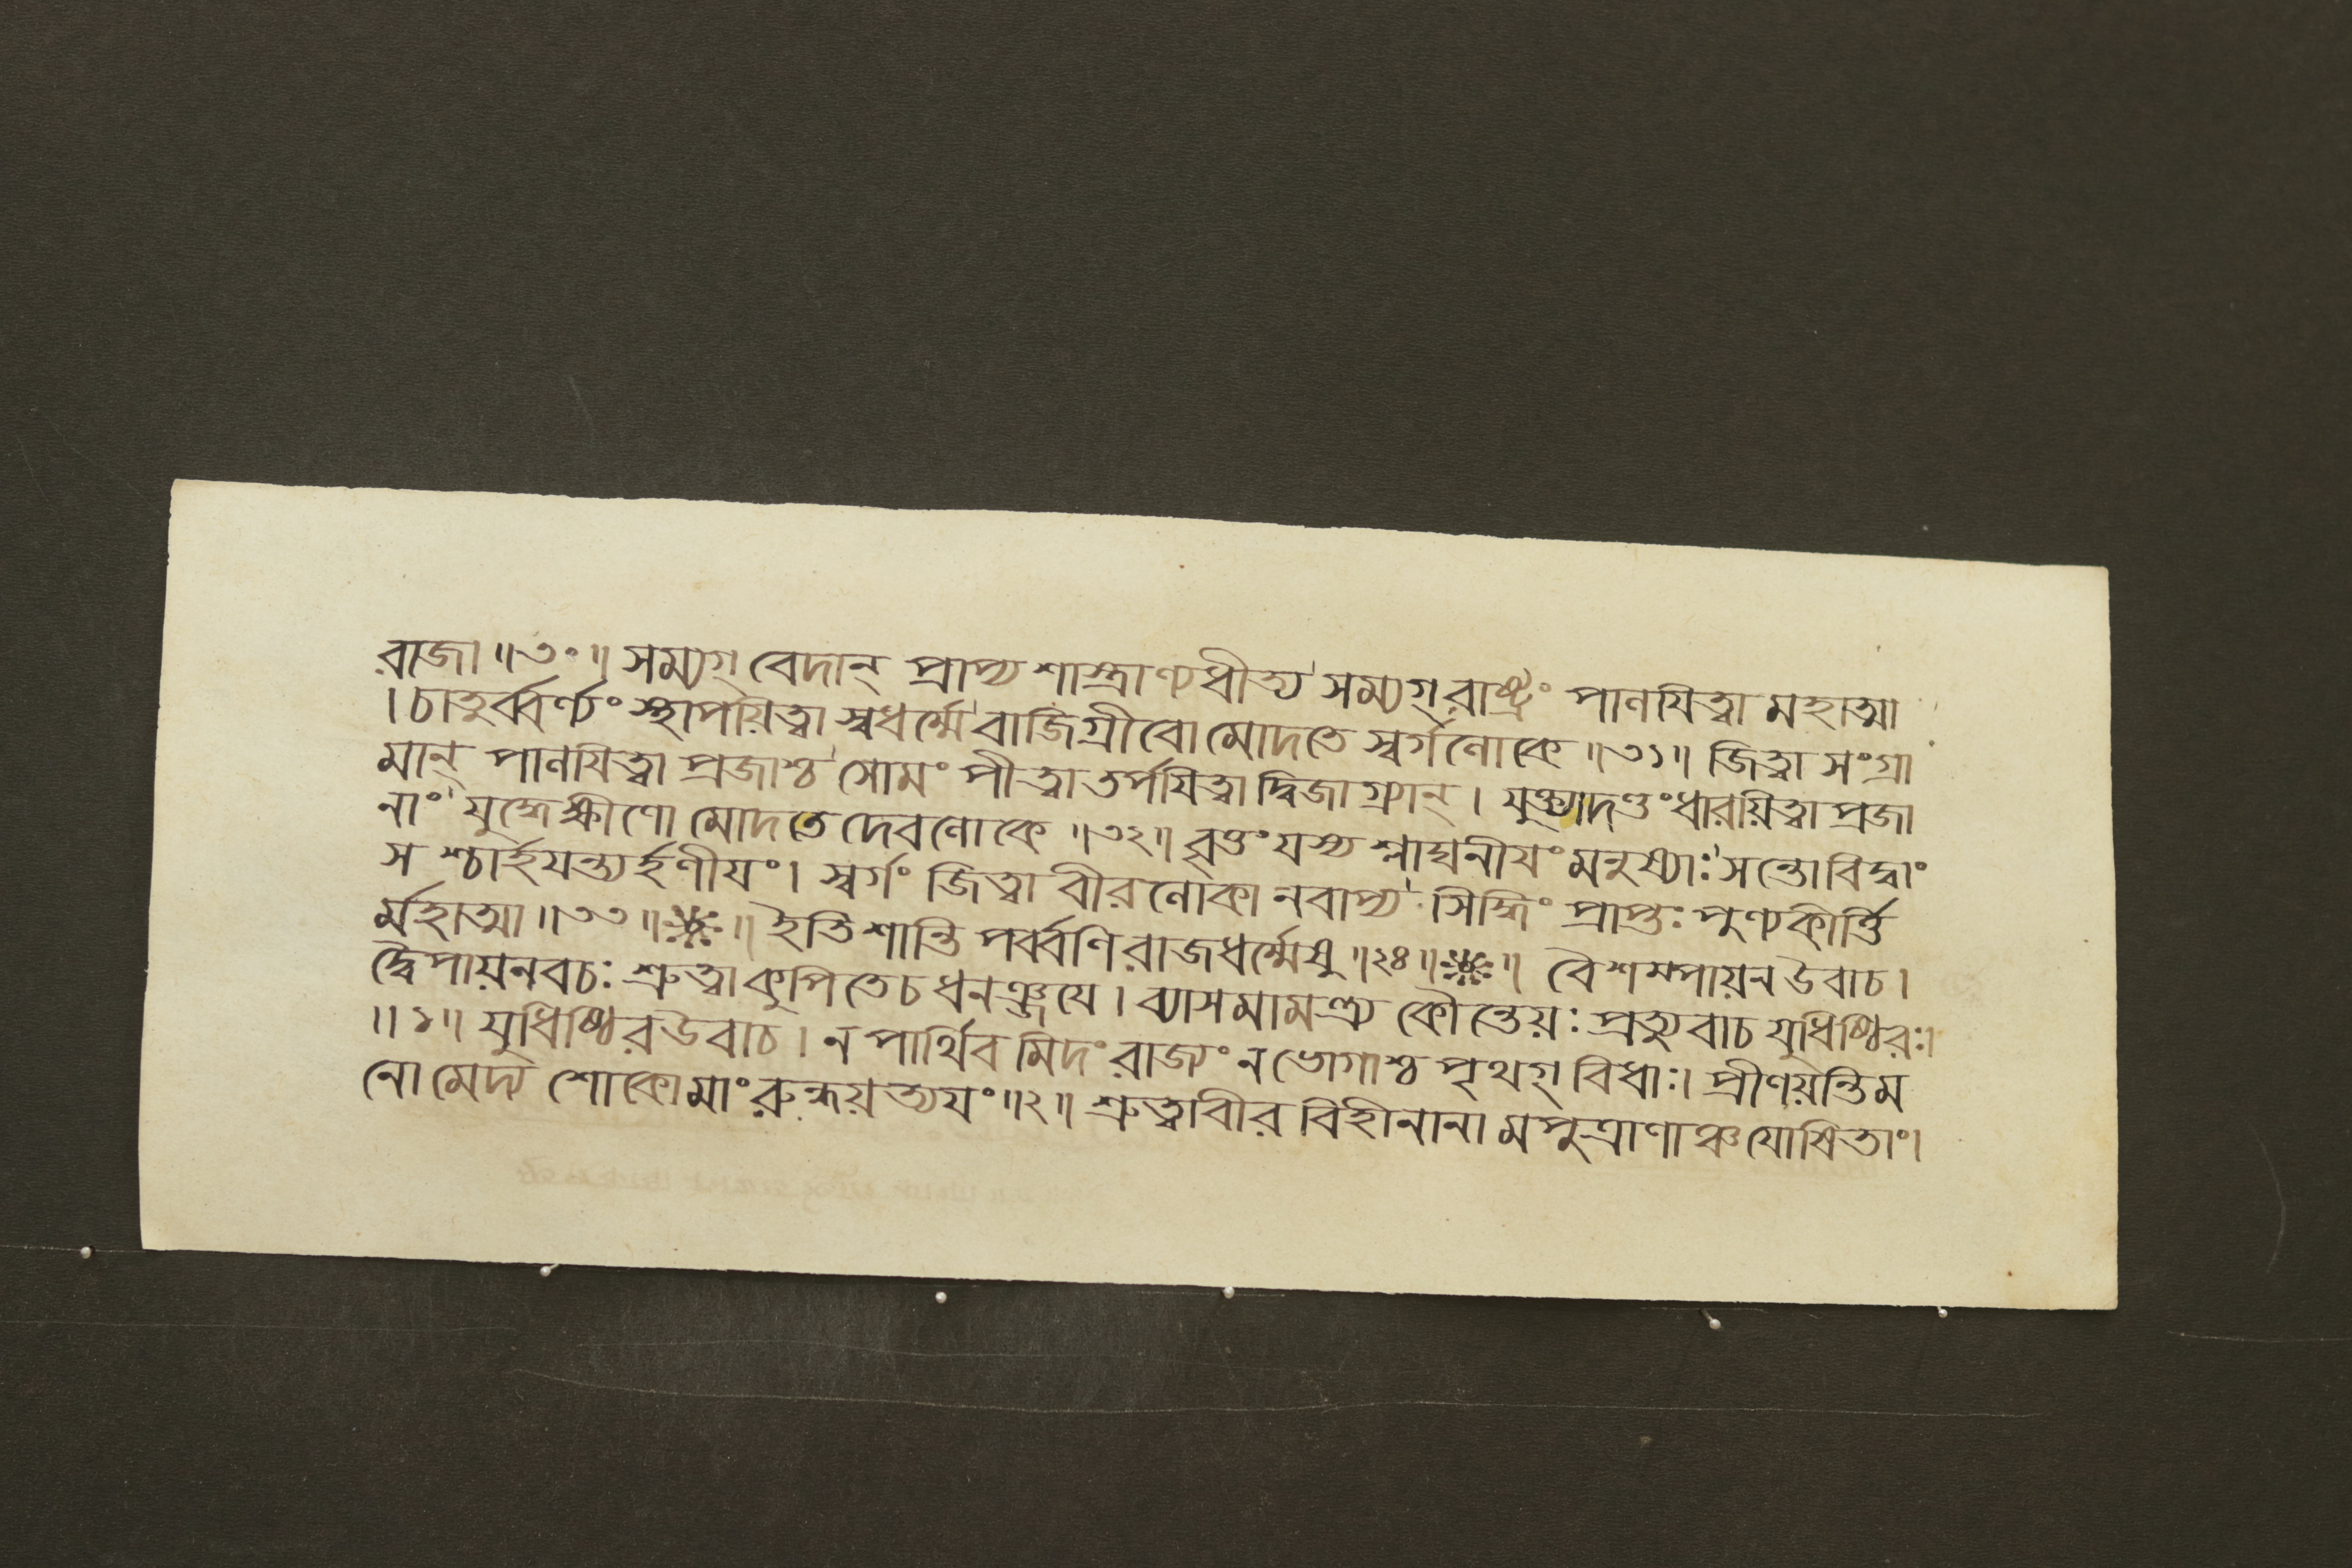 রাজা ॥৩০॥ সম্যগ্ বেদান্ প্রাপ্য শাস্ত্রাণ্যধীত্য সম্যগ্ রাষ্ট্রং পালযিত্বা মহাত্মা
। চাতুর্ব্বর্ণ্যং স্থাপয়িত্বা স্বধর্ম্মে বাজিগ্রীবো মোদতে স্বর্গলোকে ॥৩১॥ জিত্বা সংগ্রা
মান্ পালযিত্বা প্রজাশ্চ সোমং পীত্বা তর্পযিত্বা দ্বিজাগ্র্যান্ । যুক্ত্যাদণ্ডং ধারয়িত্বা প্রজা
নাং যুদ্ধেক্ষীণো মোদতে দেবলোকে ॥৩২॥ বৃত্তং যস্য শ্লাঘনীযং মনুষ্যাঃ সন্তো বিদ্বাং
সশ্চার্হযন্ত্যর্হণীযং । স্বর্গং জিত্বা বীরলোকানবাপ্য সিদ্ধিং প্রাপ্তঃ পুণ্যকীর্ত্তি
র্মহাত্মা ॥৩৩॥ ॥ ইতি শান্তি পর্ব্বণি রাজধর্ম্মেষু ॥২৪॥ ॥ বৈশম্পায়ন উবাচ ।
দ্বৈপায়নবচঃ শ্রুত্বা কুপিতে চ ধনঞ্জযে । ব্যাসমামন্ত্র্য কৌন্তেয়ঃ প্রত্যুবাচ যুধিষ্ঠিরঃ।
॥১॥ যুধিষ্ঠির উবাচ । ন পার্থিবমিদং রাজ্যং ন ভোগাশ্চ পৃথগ্ বিধাঃ। প্রীণয়ন্তি ম
নো মেদ্য শোকো মাং রুন্ধয়ত্যযং ॥২॥ শ্রুত্বা বীর বিহীনানামপুত্রাণাঞ্চ যোষিতাং।